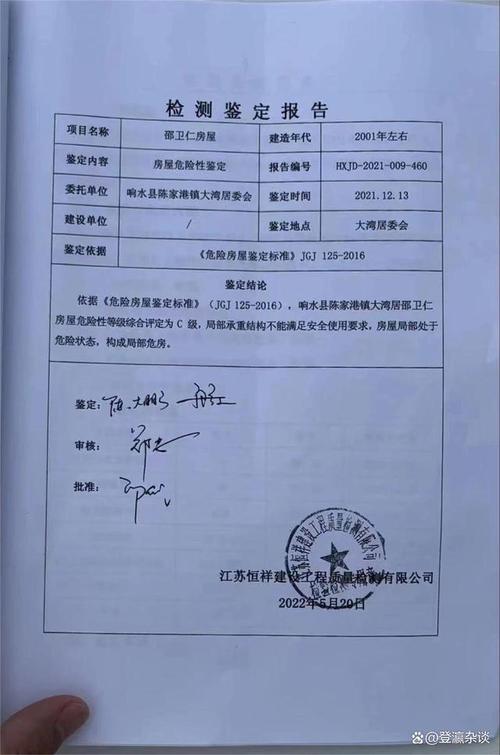 检测鉴定报告
项目名称 邵卫仁房屋 建造年代 2001年左右
鉴定内容 房屋危险性鉴定 报告编号 HXJD-2021-009-460
委托单位 响水县陈家港镇大湾居委会 鉴定时间 2021.12.13
建设单位 / 鉴定地点 大湾居委会
鉴定依据 《危险房屋鉴定标准》JGJ 125-2016
鉴定结论
依据《危险房屋鉴定标准》（JGJ 125-2016），响水县陈家港镇大湾居邵卫仁
房屋危险性等级综合评定为 C 级，局部承重结构不能满足安全使用要求，房屋局部处于
危险状态，构成局部危房。
鉴定：
审核：
批准：
江苏恒祥建设工程质量检测有限公司
2022年5月20日
@登瀛杂谈